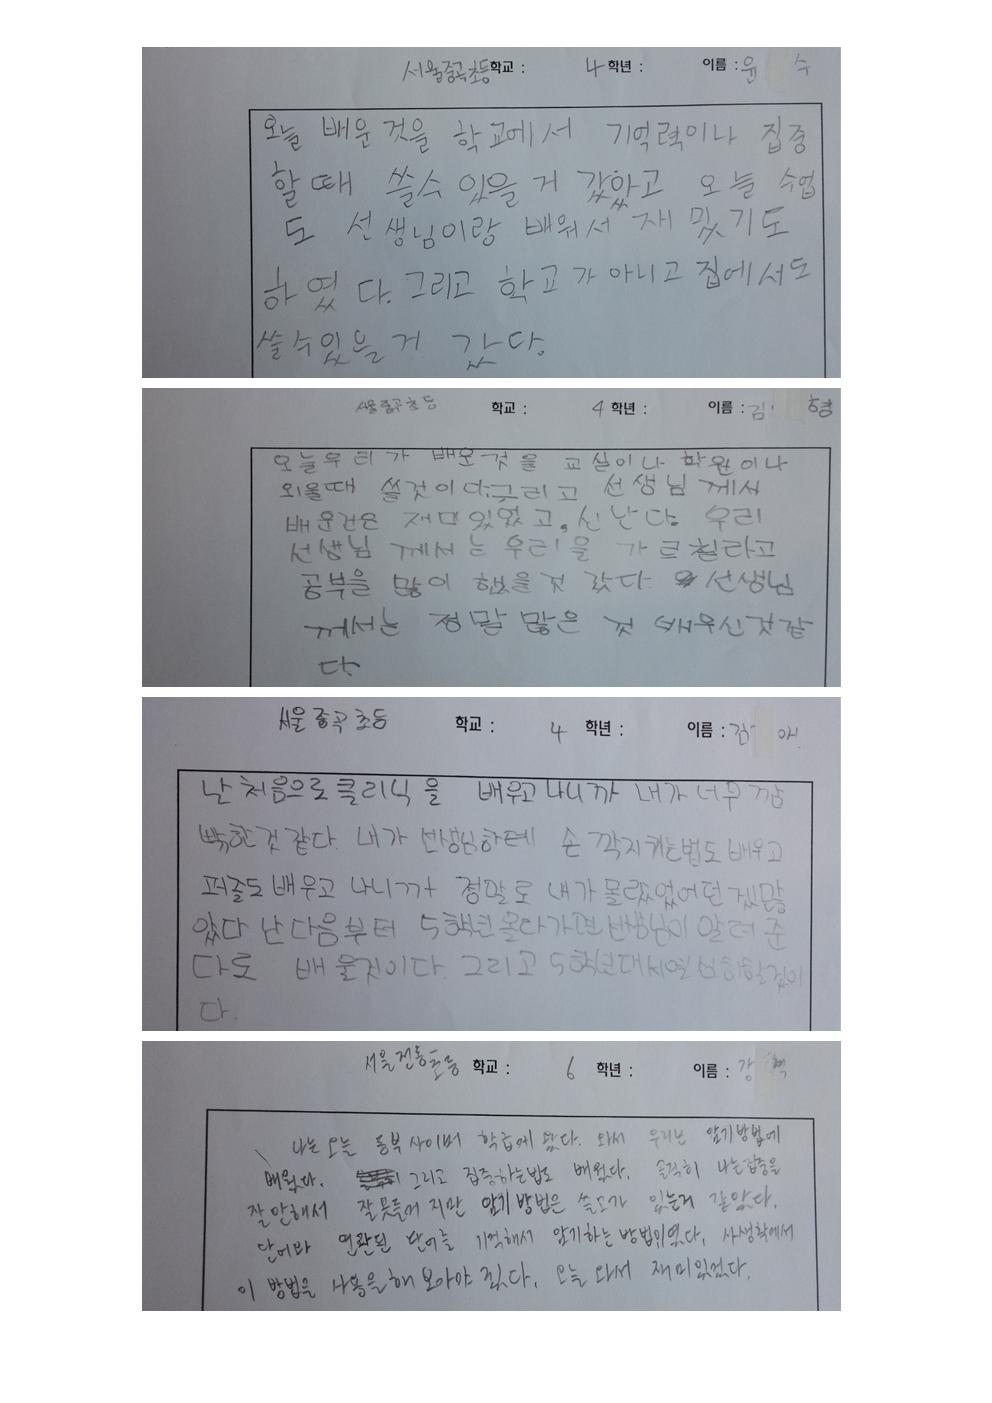 서울중곡초등학교 : 4 학년 : 이름 : 윤 수
오늘 배운 것을 학교에서 기억력이나 집중
할 때 쓸수 있을 거 갔았고 오늘 수업
도 선생님이랑 배워서 재밌기도
하였다. 그리고 학교가 아니고 집에서도
쓸수있을거 갔다.
서울중곡초등 학교 : 4 학년 : 이름 : 김 형
오늘우리가 배운것을 교실이나 학원이나
외울때 쓸것이다. 그리고 선생님께서
배운건은 재미있었고, 신난다. 우리
선생님 께서는 우리을 가르칠라고
공부을 많이 했을것 갔다. 선생님
께서는 정말 많은 것 배우신것같
다.
서울중곡초등 학교 : 4 학년 : 이름 :
난 처음으로 클리닉을 배우고 나니까 내가 너무 깜
빡한것 같다. 내가 선생님한테 손 깍지켜는법도 배우고
퍼즐도 배우고 나니까 정말로 내가 몰랐었던
았다 난 다음부터 5학년 올라가면 선생님이 알려준
다로 배울것이다. 그리고 5학년대서
다.
서울전동초등 학교 : 6 학년 : 이름 : 강 혁
나는 오늘 동부 사이버 학급에 왔다. 와서 우리는 암기방법에
배웠다. 그리고 집중하는법도 배웠다. 솔직히 나는집중을
잘 안해서 잘 못들거 지만 암기 방법은 쓸모가 있는거 같았다.
단어와 연관된 단어를 기억해서 암기하는 방법이였다.
이 방법을 사용을해 보아야 겠다. 오늘 와서 재미있었다.